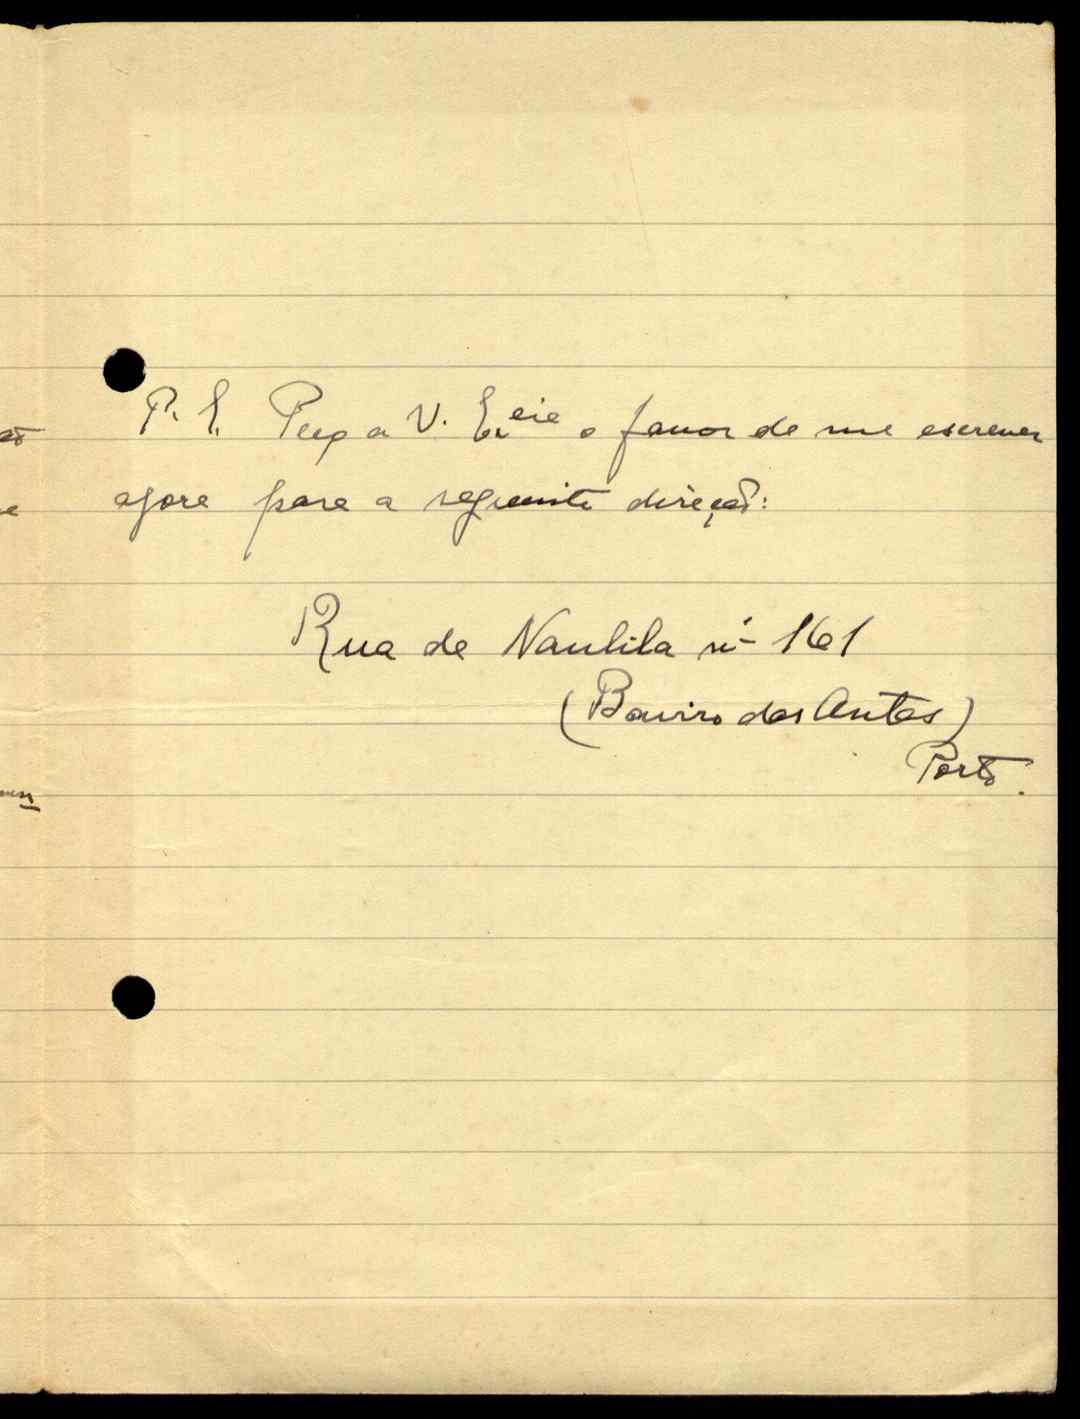 P. S. Peço a V. Ex.cia o favor de me escrever
agora para a seguinte direção:
Rua de Naulila nº 161
(Bairro das Antas)
Porto.